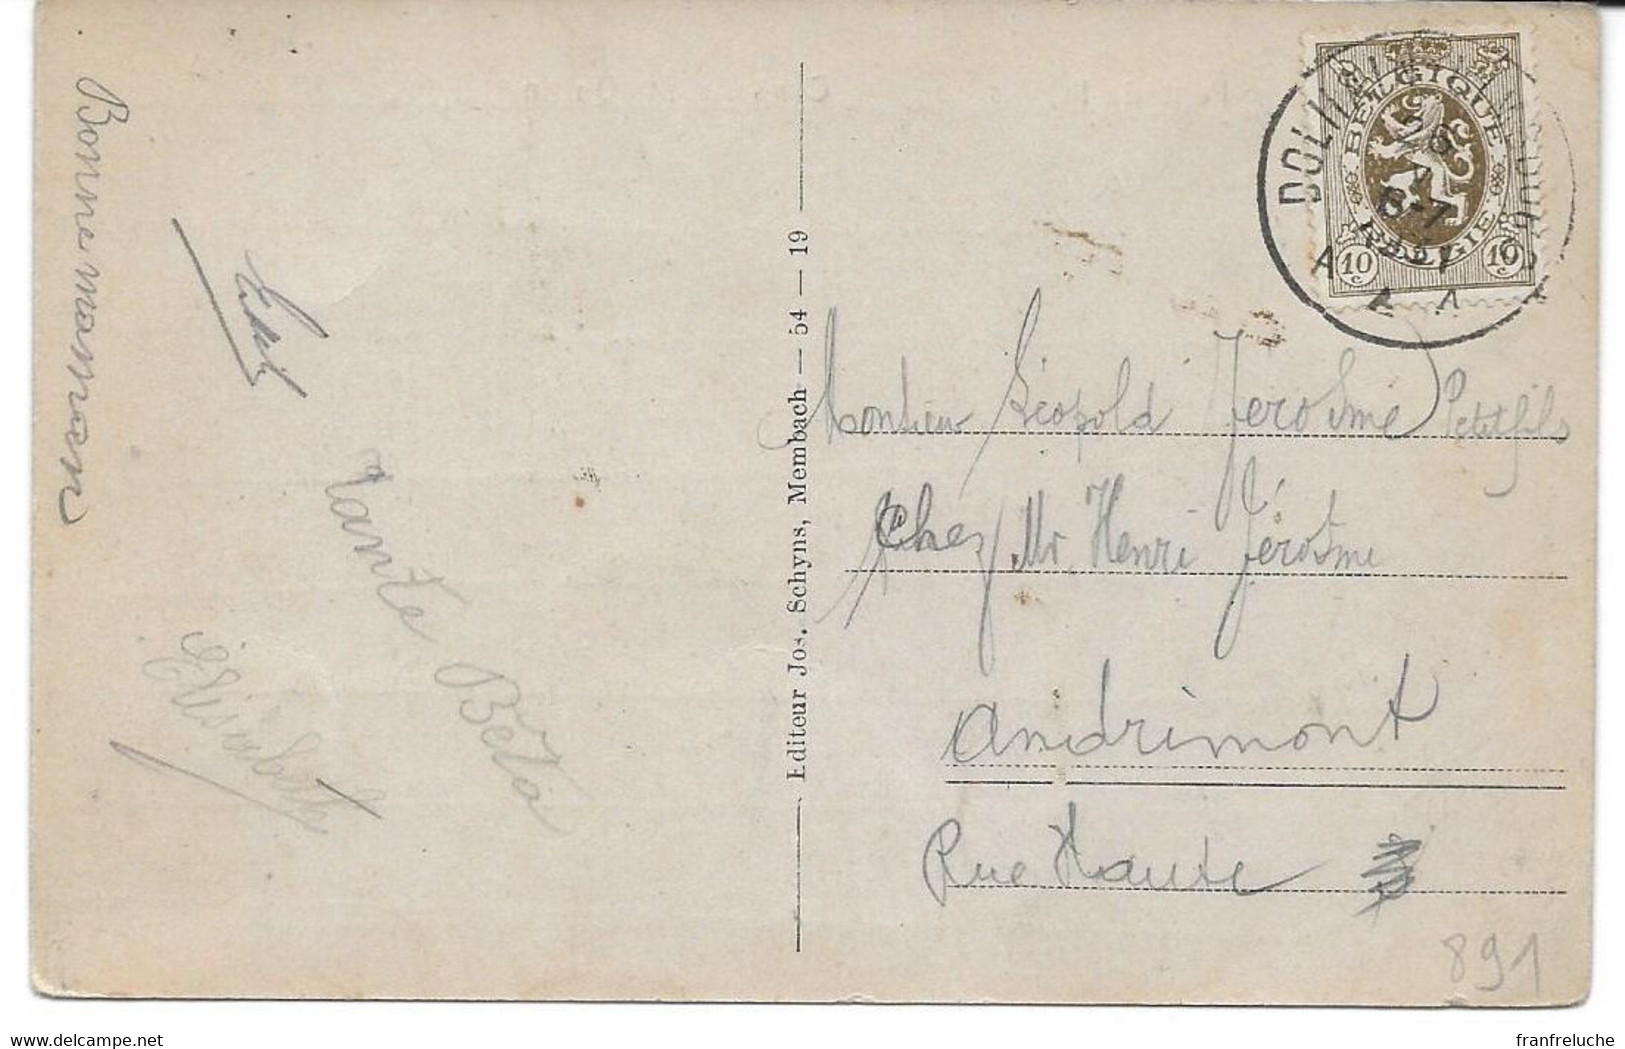 Bonne maman
Tante Beta
Elisabeth
Editeur Jos. Schyns, Membach — 54 — 19
BELGIQUE
BELGIE
10 c
10 c
26
V
6-7
Monsieur Léopold Jerosme Petitfils
Chez Mr. Henri Jérosme
Andrimont
Rue Haute
891
delcampe.net
franfreluche